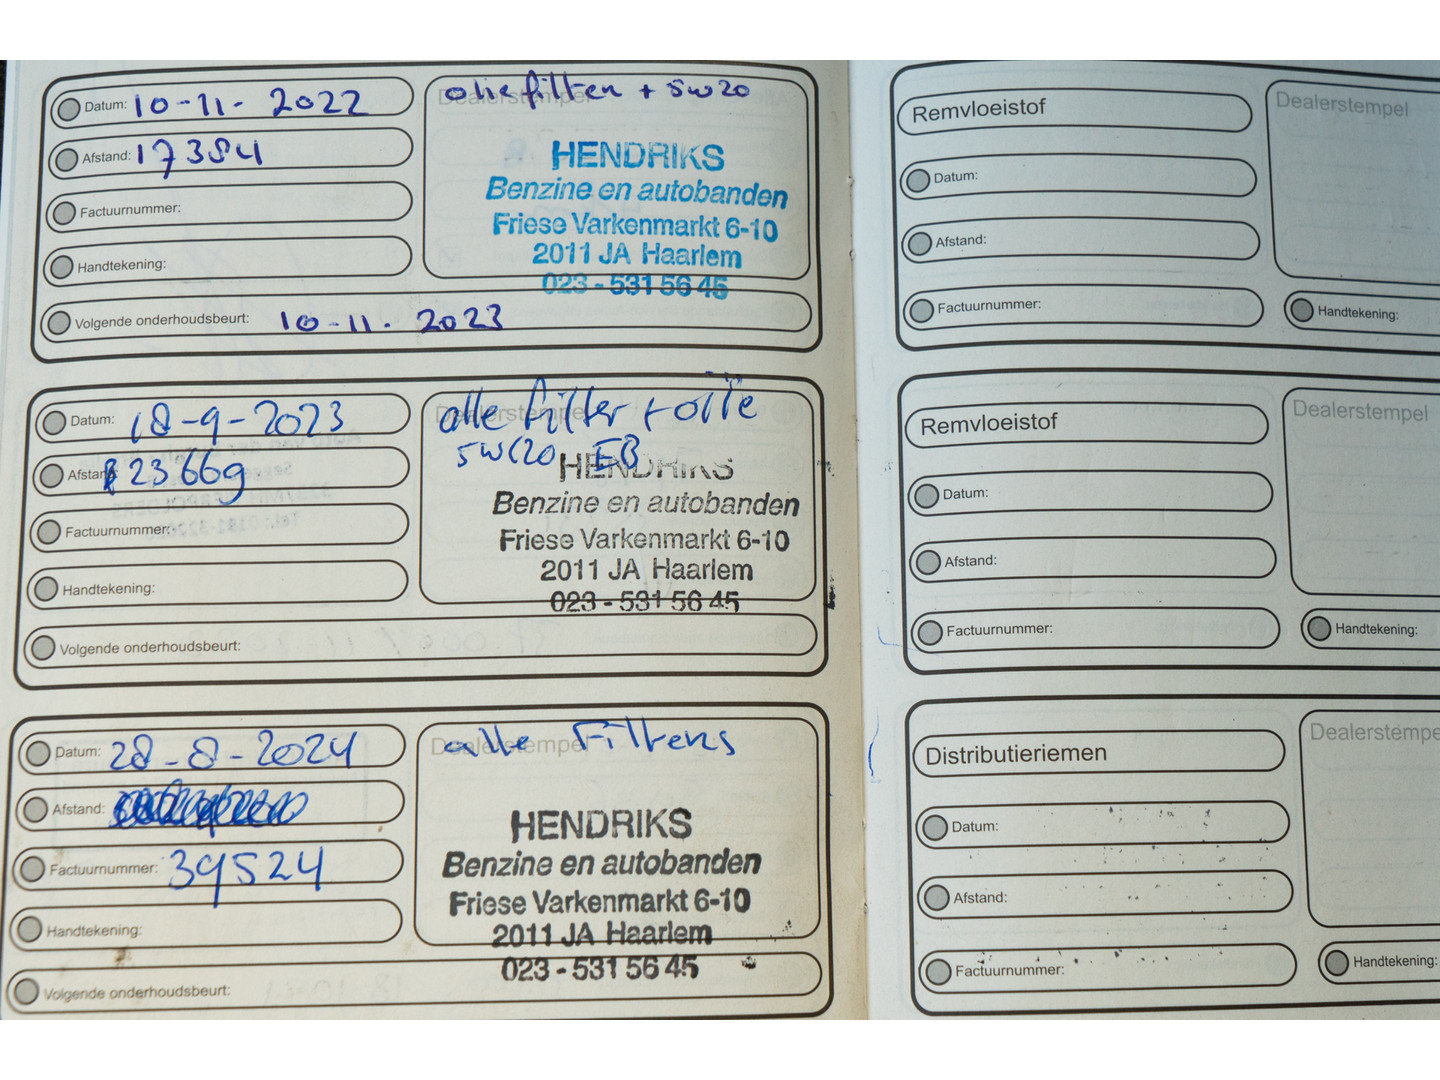 Datum: 10-11-2022
Afstand: 17384
Factuurnummer:
Handtekening:
Volgende onderhoudsbeurt: 10-11-2023
Dealerstempel
oliefilter + 5w20
HENDRIKS
Benzine en autobanden
Friese Varkenmarkt 6-10
2011 JA Haarlem
023 - 531 56 45
Datum: 18-9-2023
Afstand: 23669
Factuurnummer:
Handtekening:
Volgende onderhoudsbeurt:
Dealerstempel
alle filter + oile
5W20 EB
HENDRIKS
Benzine en autobanden
Friese Varkenmarkt 6-10
2011 JA Haarlem
023 - 531 56 45
Datum: 28-8-2024
Afstand:
Factuurnummer: 39524
Handtekening:
Volgende onderhoudsbeurt:
Dealerstempel
alle Filters
HENDRIKS
Benzine en autobanden
Friese Varkenmarkt 6-10
2011 JA Haarlem
023 - 531 56 45
Remvloeistof
Datum:
Afstand:
Factuurnummer:
Dealerstempel
Handtekening:
Remvloeistof
Datum:
Afstand:
Factuurnummer:
Dealerstempel
Handtekening:
Distributieriemen
Datum:
Afstand:
Factuurnummer:
Dealerstempe
Handtekening: